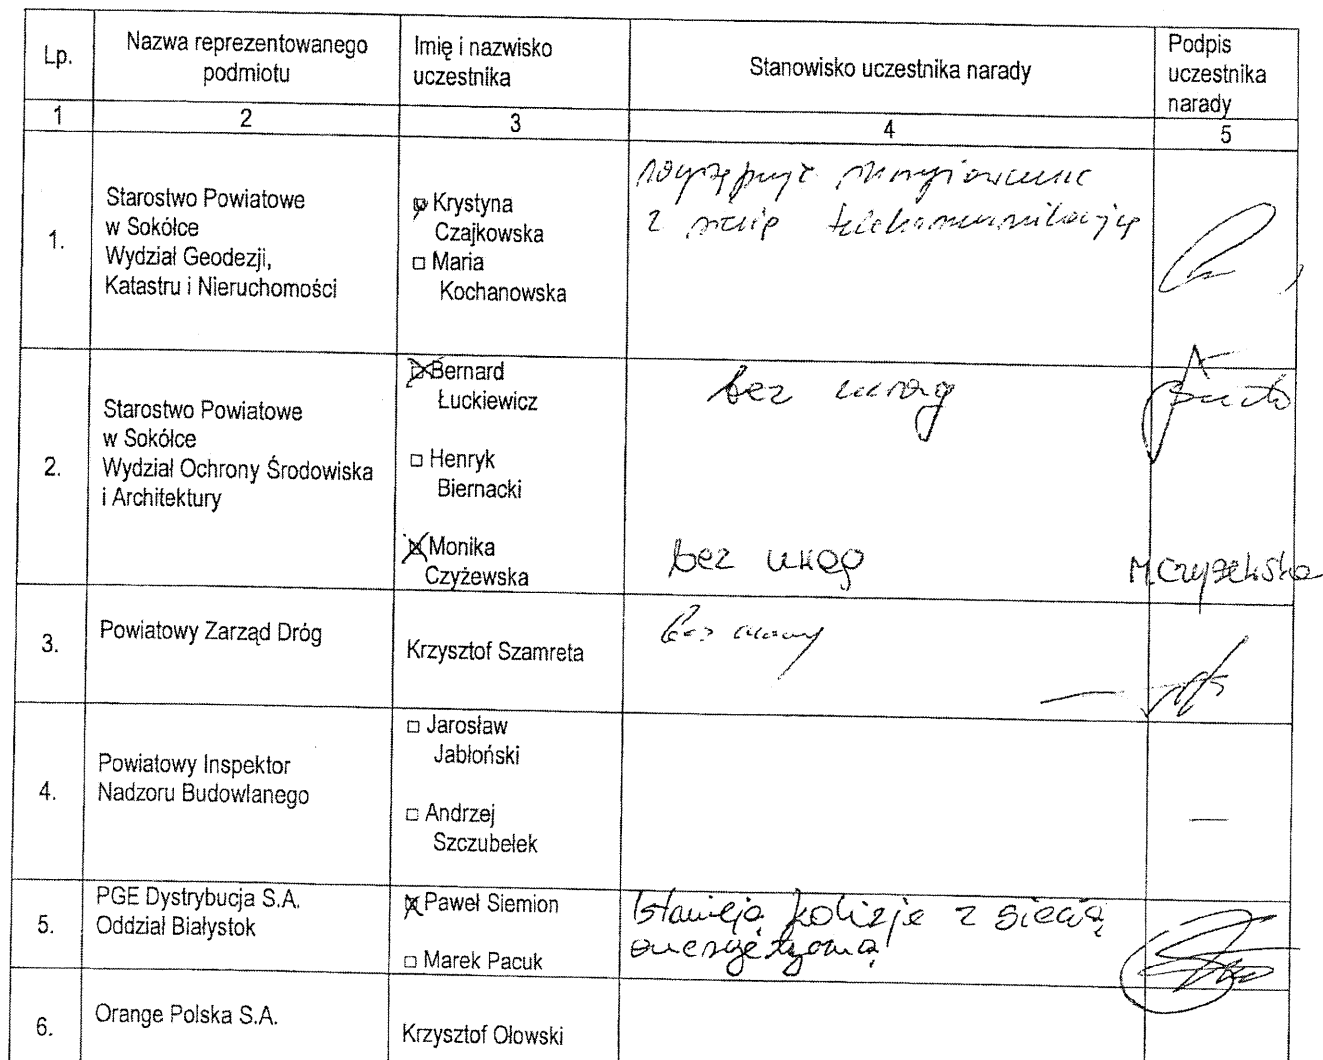 Lp.
Nazwa reprezentowanego
podmiotu
Imię i nazwisko
uczestnika
Stanowisko uczestnika narady
Podpis
uczestnika
narady
1
2
3
4
5
1.
Starostwo Powiatowe
w Sokółce
Wydział Geodezji,
Katastru i Nieruchomości
Krystyna
Czajkowska
□ Maria
Kochanowska
występuje skrzyżowanie
z siecią telekomunikacyjną
2.
Starostwo Powiatowe
w Sokółce
Wydział Ochrony Środowiska
i Architektury
Bernard
Łuckiewicz
□ Henryk
Biernacki
Monika
Czyżewska
bez uwag
bez uwag
M.Czyżewska
3.
Powiatowy Zarząd Dróg
Krzysztof Szamreta
bez uwag
4.
Powiatowy Inspektor
Nadzoru Budowlanego
□ Jarosław
Jabłoński
□ Andrzej
Szczubełek
—
5.
PGE Dystrybucja S.A.
Oddział Białystok
Paweł Siemion
□ Marek Pacuk
Istnieją kolizje z siecią
energetyczną
6.
Orange Polska S.A.
Krzysztof Ołowski